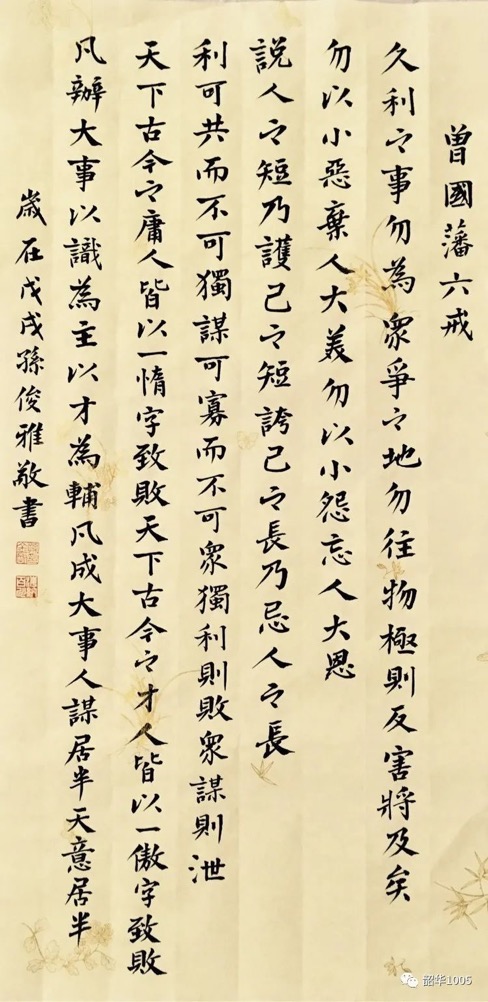 曾國藩六戒
久利之事勿為衆爭之地勿往物極則反害將及矣
勿以小惡棄人大美勿以小怨忘人大恩
說人之短乃護己之短誇己之長乃忌人之長
利可共而不可獨謀可寡而不可衆獨利則敗衆謀則泄
天下古今之庸人皆以一惰字致敗天下古今之才人皆以一傲字致敗
凡辦大事以識為主以才為輔凡成大事人謀居半天意居半
歲在戊戌孫俊雅敬書
韶华1005